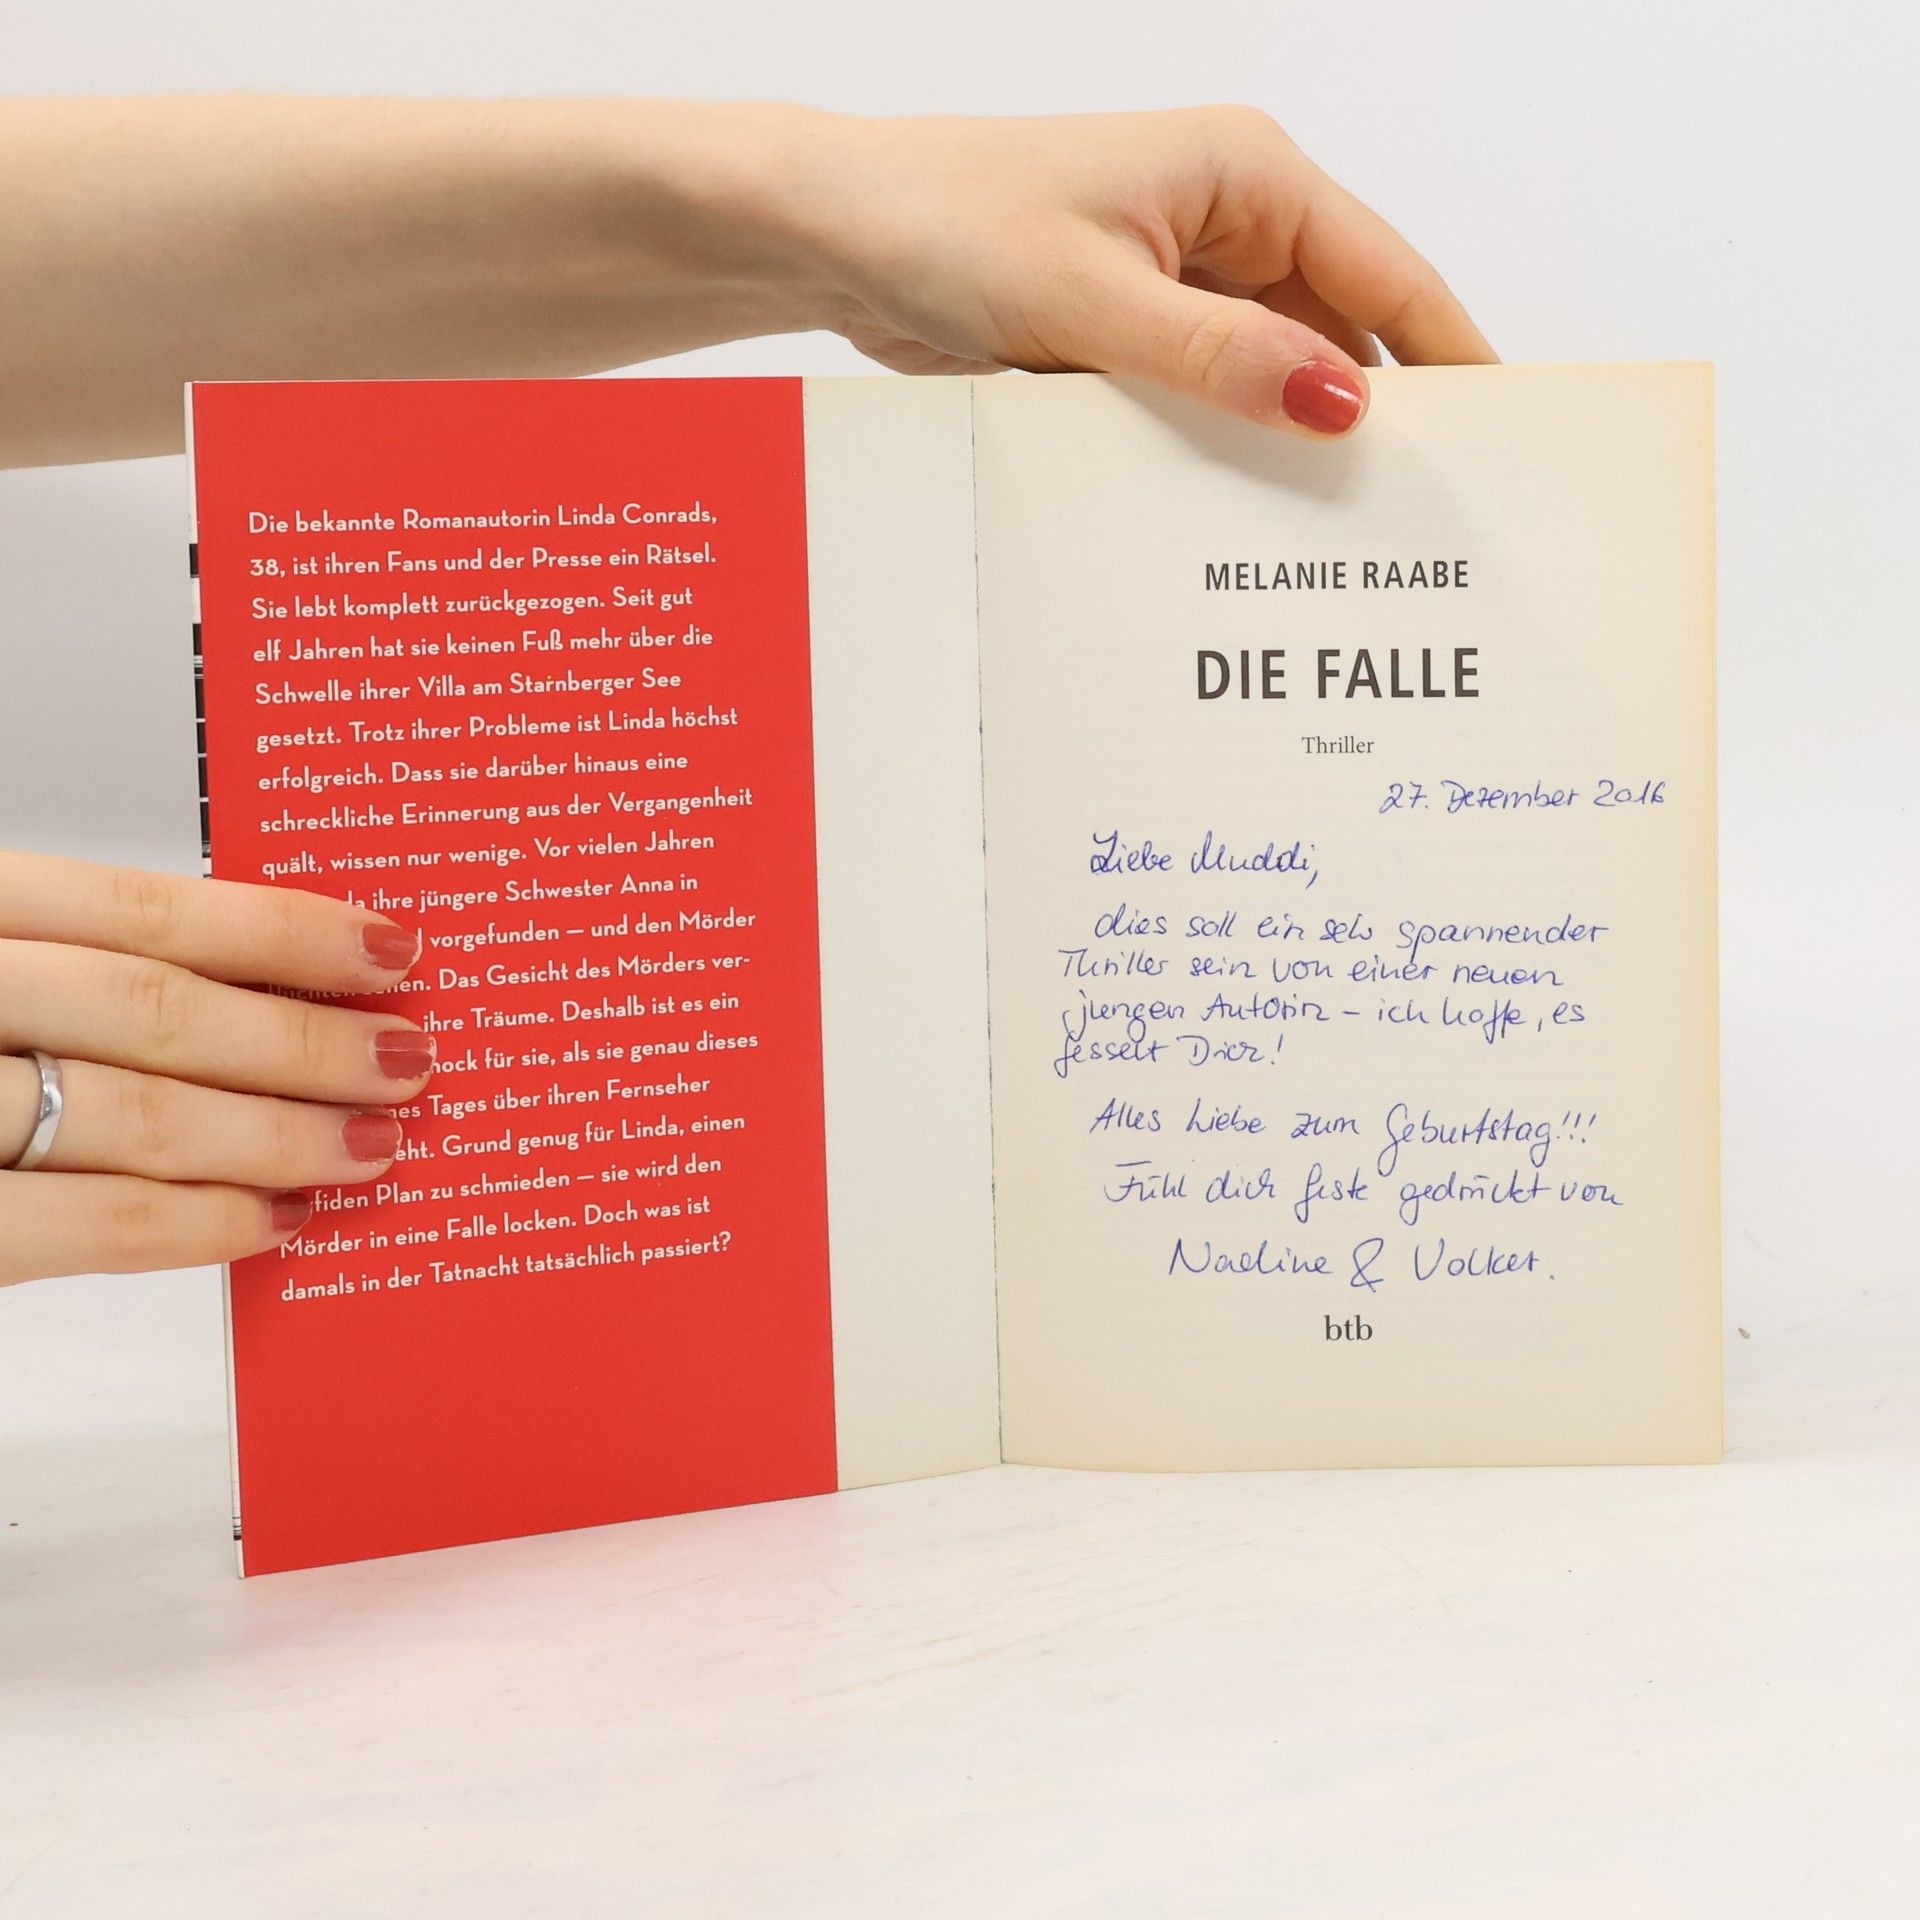 Die bekannte Romanautorin Linda Conrads,
38, ist ihren Fans und der Presse ein Rätsel.
Sie lebt komplett zurückgezogen. Seit gut
elf Jahren hat sie keinen Fuß mehr über die
Schwelle ihrer Villa am Starnberger See
gesetzt. Trotz ihrer Probleme ist Linda höchst
erfolgreich. Dass sie darüber hinaus eine
schreckliche Erinnerung aus der Vergangenheit
quält, wissen nur wenige. Vor vielen Jahren
ihre jüngere Schwester Anna in
vorgefunden – und den Mörder
Das Gesicht des Mörders ver-
ihre Träume. Deshalb ist es ein
für sie, als sie genau dieses
Tages über ihren Fernseher
Grund genug für Linda, einen
Plan zu schmieden – sie wird den
Mörder in eine Falle locken. Doch was ist
damals in der Tatnacht tatsächlich passiert?
MELANIE RAABE
DIE FALLE
Thriller
27. Dezember 2016
Liebe Muddi,
dies soll ein sehr spannender
Thriller sein von einer neuen
jungen Autorin – ich hoffe, es
fesselt Dich!
Alles Liebe zum Geburtstag!!!
Fühl dich feste gedrückt von
Nadine & Volker.
btb